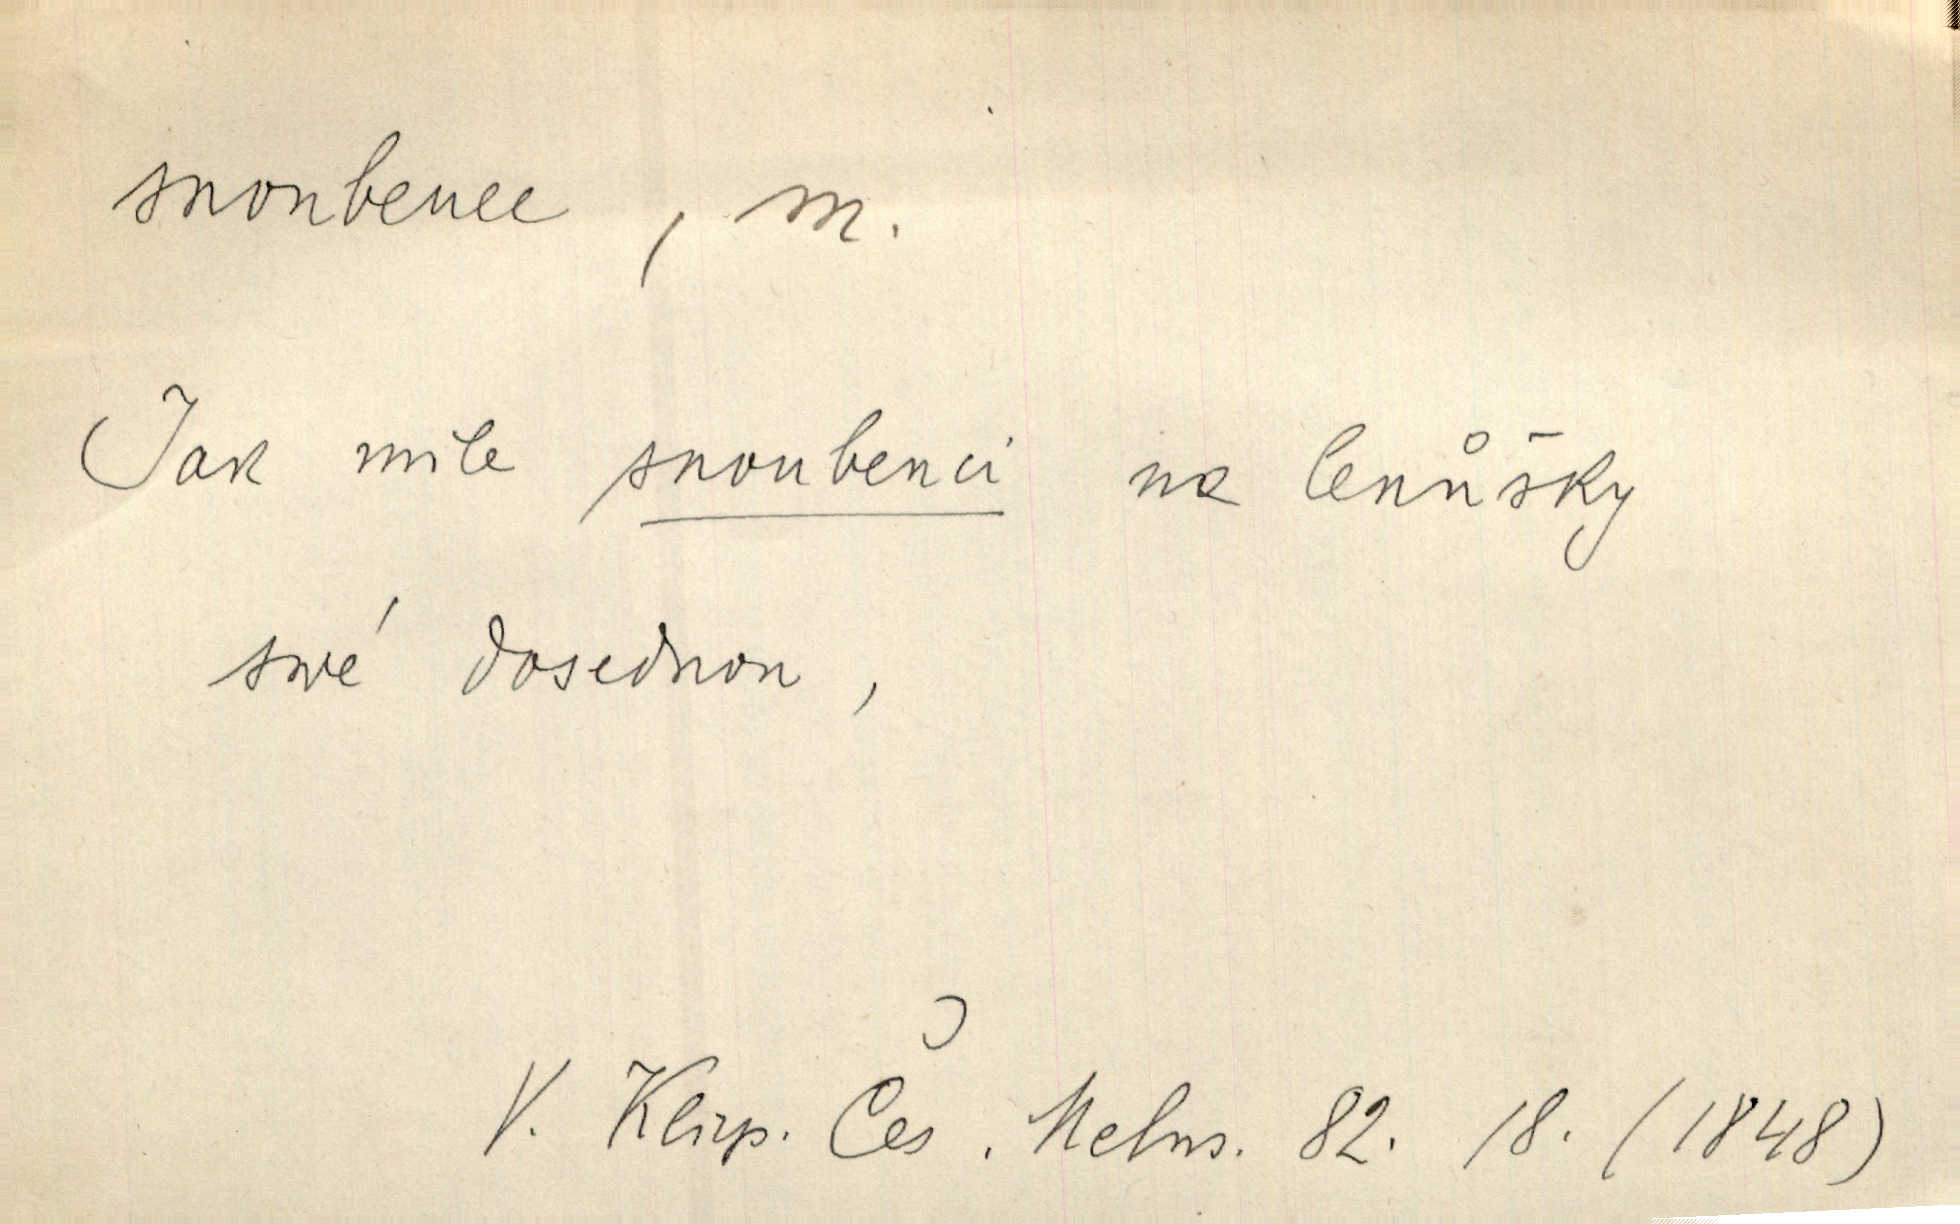 snoubenec, m.
Jak mile snoubenci na lenůšky
swé dosednou,
V. Klizp. Čes. Meluz. 82. 18. (1848)